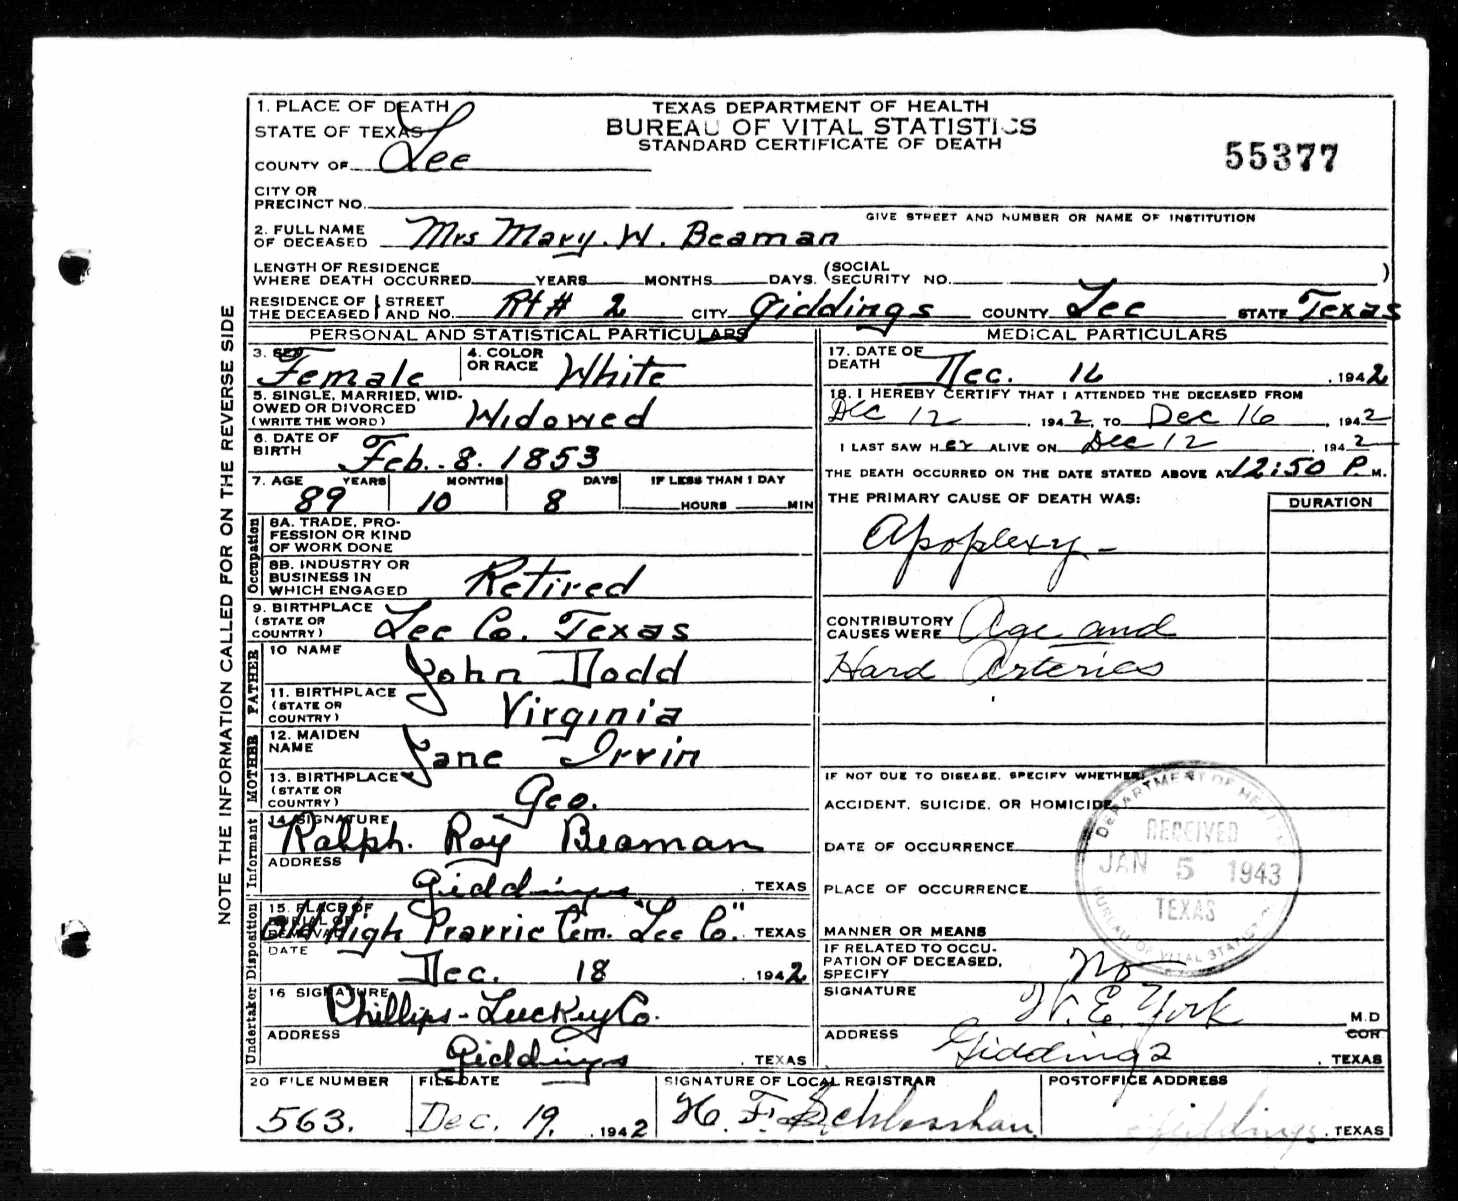 NOTE THE INFORMATION CALLED FOR ON THE REVERSE SIDE
TEXAS DEPARTMENT OF HEALTH
BUREAU OF VITAL STATISTICS
STANDARD CERTIFICATE OF DEATH
55377
1. PLACE OF DEATH
STATE OF TEXAS
COUNTY OF Lee
CITY OR
PRECINCT NO.
GIVE STREET AND NUMBER OR NAME OF INSTITUTION
2. FULL NAME
OF DECEASED Mrs Mary. W. Beaman
LENGTH OF RESIDENCE
WHERE DEATH OCCURRED YEARS MONTHS DAYS. (SOCIAL SECURITY NO. )
RESIDENCE OF THE DECEASED STREET AND NO. Rt# 2 CITY Giddings COUNTY Lee STATE Texas
PERSONAL AND STATISTICAL PARTICULARS
3. SEX Female 4. COLOR OR RACE White
5. SINGLE, MARRIED, WIDOWED OR DIVORCED
(WRITE THE WORD) Widowed
6. DATE OF
BIRTH Feb. 8. 1853
7. AGE YEARS MONTHS DAYS IF LESS THAN 1 DAY
89 10 8 HOURS MIN
Occupation
8A. TRADE, PROFESSION OR KIND
OF WORK DONE
8B. INDUSTRY OR
BUSINESS IN
WHICH ENGAGED Retired
9. BIRTHPLACE
(STATE OR
COUNTRY) Lee Co. Texas
FATHER
10 NAME John Dodd
11. BIRTHPLACE
(STATE OR
COUNTRY) Virginia
MOTHER
12. MAIDEN
NAME Jane Irvin
13. BIRTHPLACE
(STATE OR
COUNTRY) Geo.
Informant
14. SIGNATURE
Ralph. Roy Beaman
ADDRESS
Giddings , TEXAS
Disposition
15. PLACE OF
BURIAL OR
REMOVAL
Old High Prarrie Cem. "Lee Co." TEXAS
DATE
Dec. 18 , 1942
Undertaker
16 SIGNATURE
Phillips-Luckey Co.
ADDRESS
Giddings , TEXAS
MEDICAL PARTICULARS
17. DATE OF
DEATH Dec. 16 , 1942
18. I HEREBY CERTIFY THAT I ATTENDED THE DECEASED FROM
Dec 12 , 1942, TO Dec 16 , 1942
I LAST SAW Her ALIVE ON Dec 12 1942
THE DEATH OCCURRED ON THE DATE STATED ABOVE AT 12:50 P. M.
THE PRIMARY CAUSE OF DEATH WAS: DURATION
Apoplexy-
CONTRIBUTORY
CAUSES WERE Age and
Hard Arteries
IF NOT DUE TO DISEASE, SPECIFY WHETHER
ACCIDENT, SUICIDE, OR HOMICIDE
DATE OF OCCURRENCE
PLACE OF OCCURRENCE
MANNER OR MEANS
IF RELATED TO OCCUPATION OF DECEASED,
SPECIFY No
SIGNATURE W. E. York M.D
COR
ADDRESS Giddings , TEXAS
DEPARTMENT OF HEALTH
RECEIVED
JAN 5 1943
TEXAS
BUREAU OF VITAL STATISTICS
20 FILE NUMBER FILE DATE SIGNATURE OF LOCAL REGISTRAR POSTOFFICE ADDRESS
563. Dec. 19, , 1942 H. F. Giddings , TEXAS